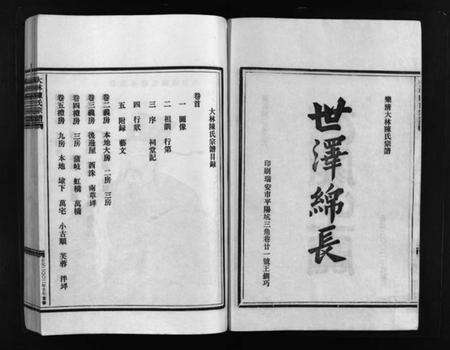 樂清大林陳氏宗譜
世澤綿長
印刷瑞安市平陽坑三角巷廿一號王鋼巧
大林陳氏宗譜目錄
卷首
一 圖像
二 祖訓 行第
三 序 祠堂記
四 行狀
五 附錄 藝文
卷二義房 本地大房 二房 三房
卷三義房 後邊屋 西洙 南草垟
卷四禮房 三房 蒲岐 虹橋 萬橋
卷五禮房 九房 本地 埭下 萬宅 小古順 芙蓉 拌垟
大林陳氏宗譜